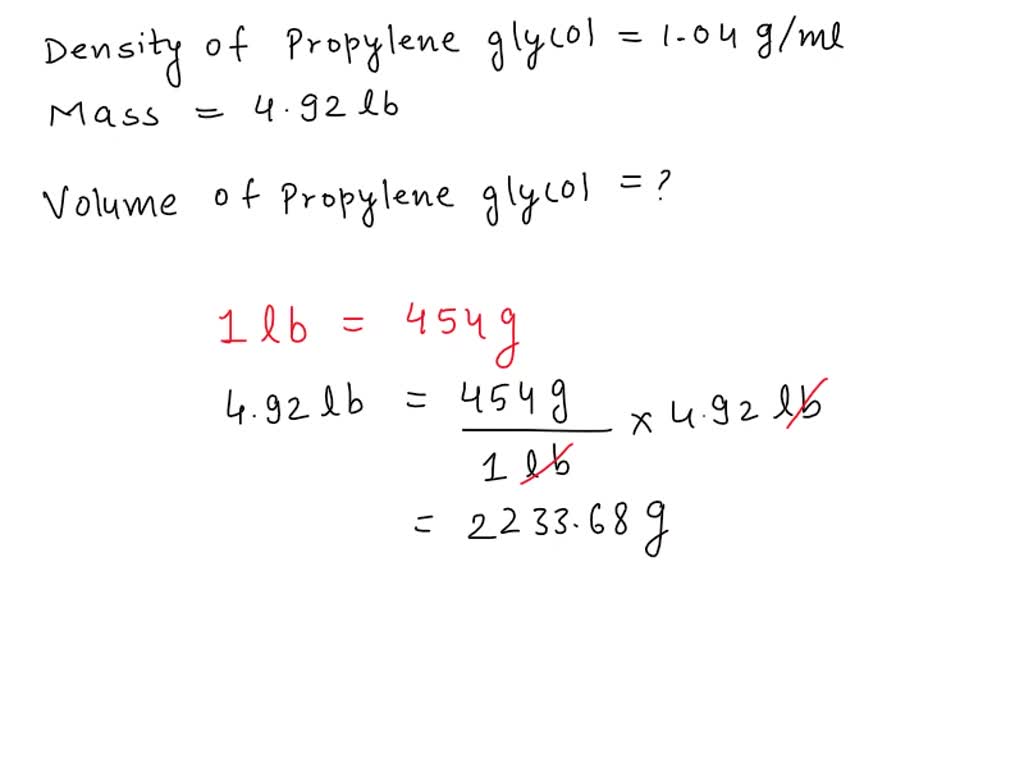 Density of Propylene glycol = 1.04 g/ml
Mass = 4.92 lb
Volume of Propylene glycol = ?
1 lb = 454 g
4.92 lb = 454 g / 1 lb × 4.92 lb
= 2233.68 g